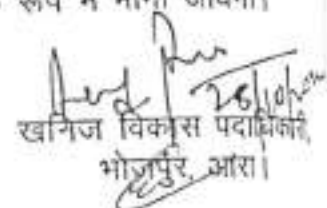 रूप में मानी जायेगी।
28/10/20
खनिज विकास पदाधिकारी,
भोजपुर, आरा।